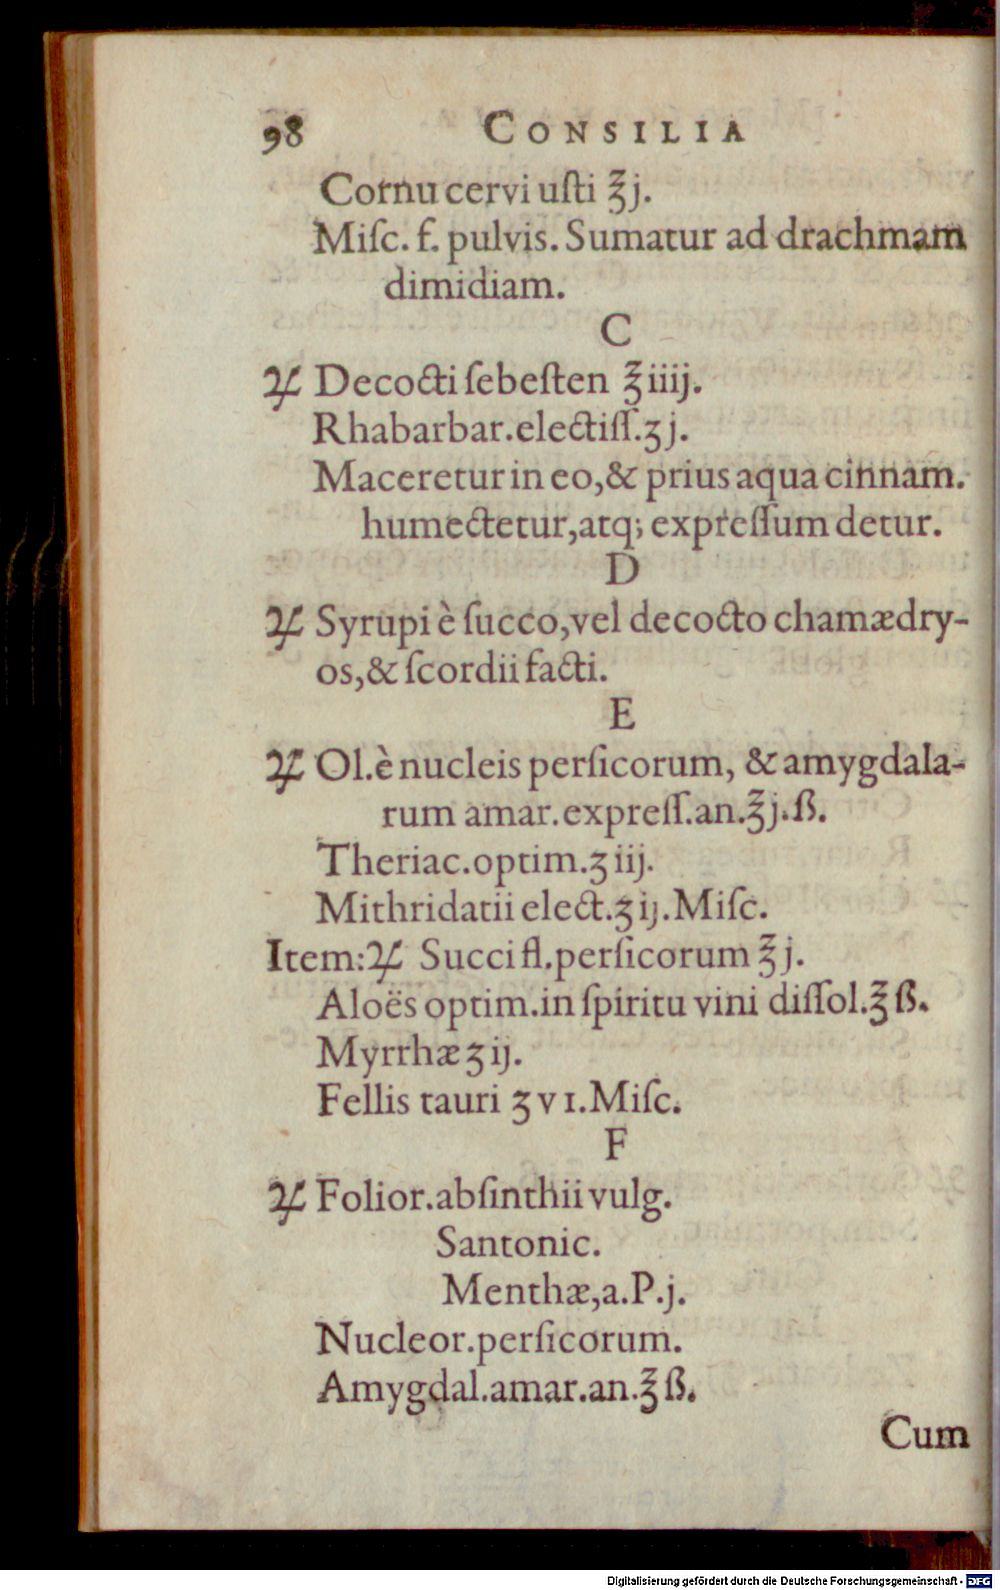 98 CONSILIA
Cornu cervi uſti ℥j.
Miſc. f. pulvis. Sumatur ad drachmam
dimidiam.
C
♃ Decocti ſebeſten ℥iiij.
Rhabarbar. electiſſ. ʒj.
Maceretur in eo, & prius aqua cinnam.
humectetur, atq; expreſſum detur.
D
♃ Syrupi è ſucco, vel decocto chamædry-
os, & ſcordii facti.
E
♃ Ol. è nucleis perſicorum, & amygdala-
rum amar. expreſſ. an. ℥j.ß.
Theriac. optim. ʒiij.
Mithridatii elect. ʒij. Miſc.
Item: ♃ Succi fl. perſicorum ℥j.
Aloës optim. in ſpiritu vini diſſol. ℥ß.
Myrrhæ ʒij.
Fellis tauri ʒvi. Miſc.
F
♃ Folior. abſinthii vulg.
Santonic.
Menthæ, a. P. j.
Nucleor. perſicorum.
Amygdal. amar. an. ℥ß.
Cum
Digitalisierung gefördert durch die Deutsche Forschungsgemeinschaft - DFG